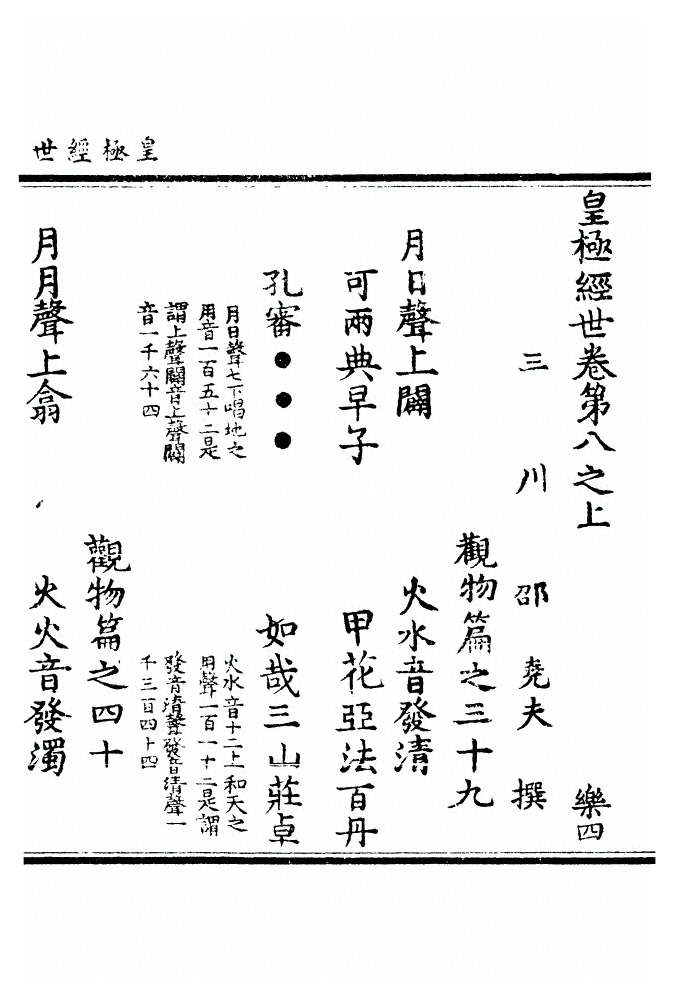 皇極經世
皇極經世卷第八之上 樂四
三川 邵堯夫 撰
觀物篇之三十九
月日聲上闢 火水音發清
可兩典早子 甲花亞法百丹
孔審●●● 如哉三山莊卓
月日聲七下唱地之
用音一百五十二是
謂上聲闢音上聲闢
音一千六十四
火水音十二上和天之
用聲一百一十二是謂
發音清聲發音清聲一
千三百四十四
觀物篇之四十
月月聲上翕 火火音發濁